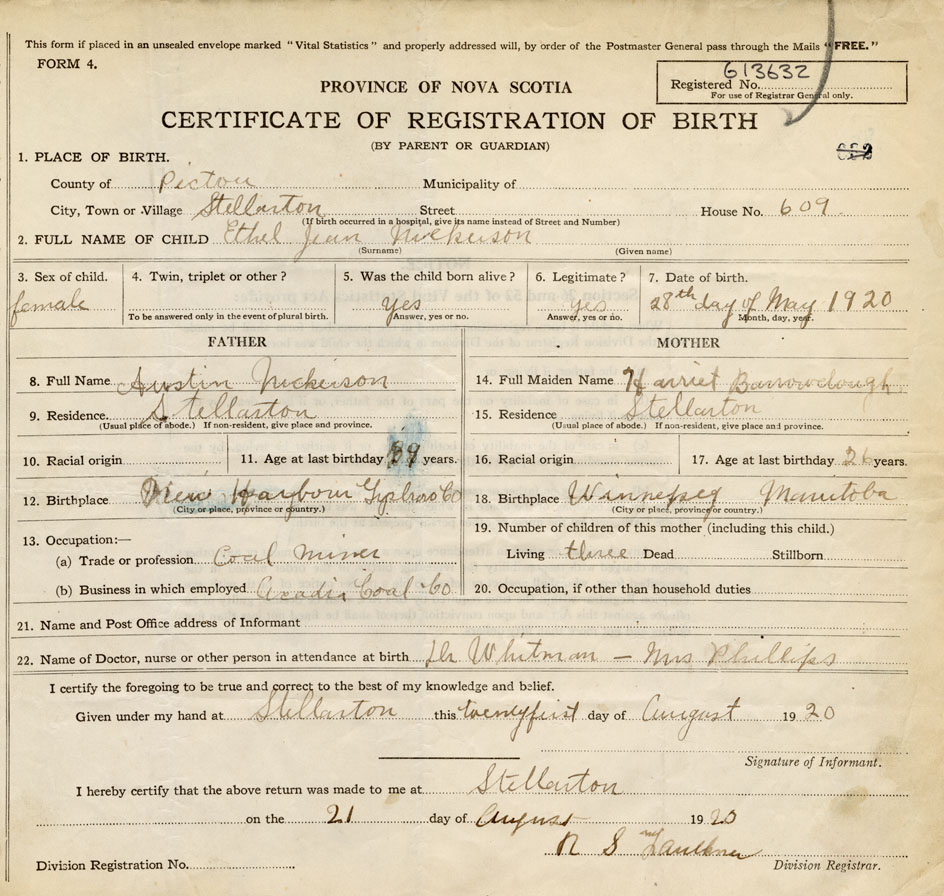 This form if placed in an unsealed envelope marked "Vital Statistics" and properly addressed will, by order of the Postmaster General pass through the Mails "FREE."
FORM 4.
613632
Registered No.
For use of Registrar General only.
PROVINCE OF NOVA SCOTIA
CERTIFICATE OF REGISTRATION OF BIRTH
(BY PARENT OR GUARDIAN)
1. PLACE OF BIRTH.
County of Pictou Municipality of
City, Town or Village Stellarton Street House No. 609
(If birth occurred in a hospital, give its name instead of Street and Number)
2. FULL NAME OF CHILD Ethel Jean Nickerson
(Surname) (Given name)
3. Sex of child. 4. Twin, triplet or other? 5. Was the child born alive? 6. Legitimate? 7. Date of birth.
female yes yes 28th day of May 1920
To be answered only in the event of plural birth. Answer, yes or no. Answer, yes or no. Month, day, year.
FATHER MOTHER
8. Full Name Austin Nickerson
9. Residence. Stellarton
(Usual place of abode.) If non-resident, give place and province.
10. Racial origin 11. Age at last birthday 39 years.
12. Birthplace New Harbour Gysboro Co
(City or place, province or country.)
13. Occupation:—
(a) Trade or profession Coal Miner
(b) Business in which employed Acadia Coal Co
14. Full Maiden Name Harriet Barrowclough
15. Residence Stellarton
(Usual place of abode.) If non-resident, give place and province.
16. Racial origin 17. Age at last birthday 26 years.
18. Birthplace Winnepeg Manitoba
(City or place, province or country.)
19. Number of children of this mother (including this child.)
Living three Dead Stillborn
20. Occupation, if other than household duties
21. Name and Post Office address of Informant
22. Name of Doctor, nurse or other person in attendance at birth Dr Whitman — Mrs Phillips
I certify the foregoing to be true and correct to the best of my knowledge and belief.
Given under my hand at Stellarton this twentyfirst day of August 1920
Signature of Informant.
I hereby certify that the above return was made to me at Stellarton
on the 21 day of August 1920
R S Faulkner
Division Registration No. Division Registrar.